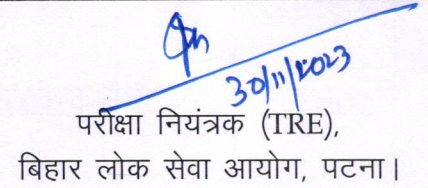 30/11/2023
परीक्षा नियंत्रक (TRE),
बिहार लोक सेवा आयोग, पटना।